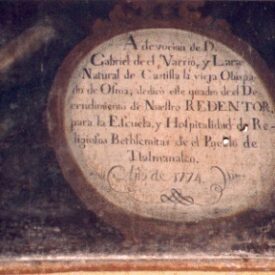 A devocion de D.
Gabriel de el Varrio, y Lara
Natural de Castilla la vieja Obispa
do de Osma, dedicó este quadro de el De
cendimiento de Nuestro REDENTOR,
para la Escuela, y Hospitalidad de Re
ligiosos Bethlemitas de el Pueblo de
Tlalmanalco.
Año de 1774.